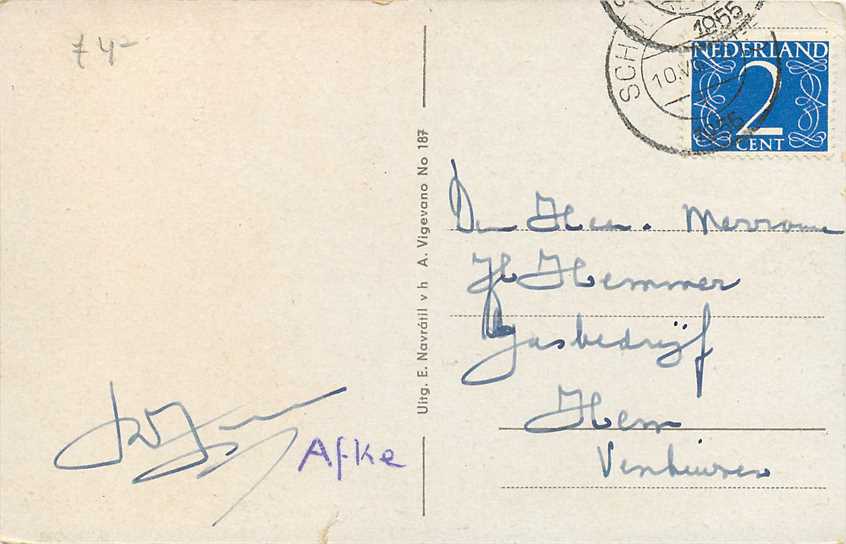 7 4-
SCH
1955
10.VII
NEDERLAND
2
CENT
Uitg. E. Navrátil v h A. Vigevano No 187
Den Heer. Mevrouw
Hemmer
Gasbedrijf
Hem
Venhuizen
Afke